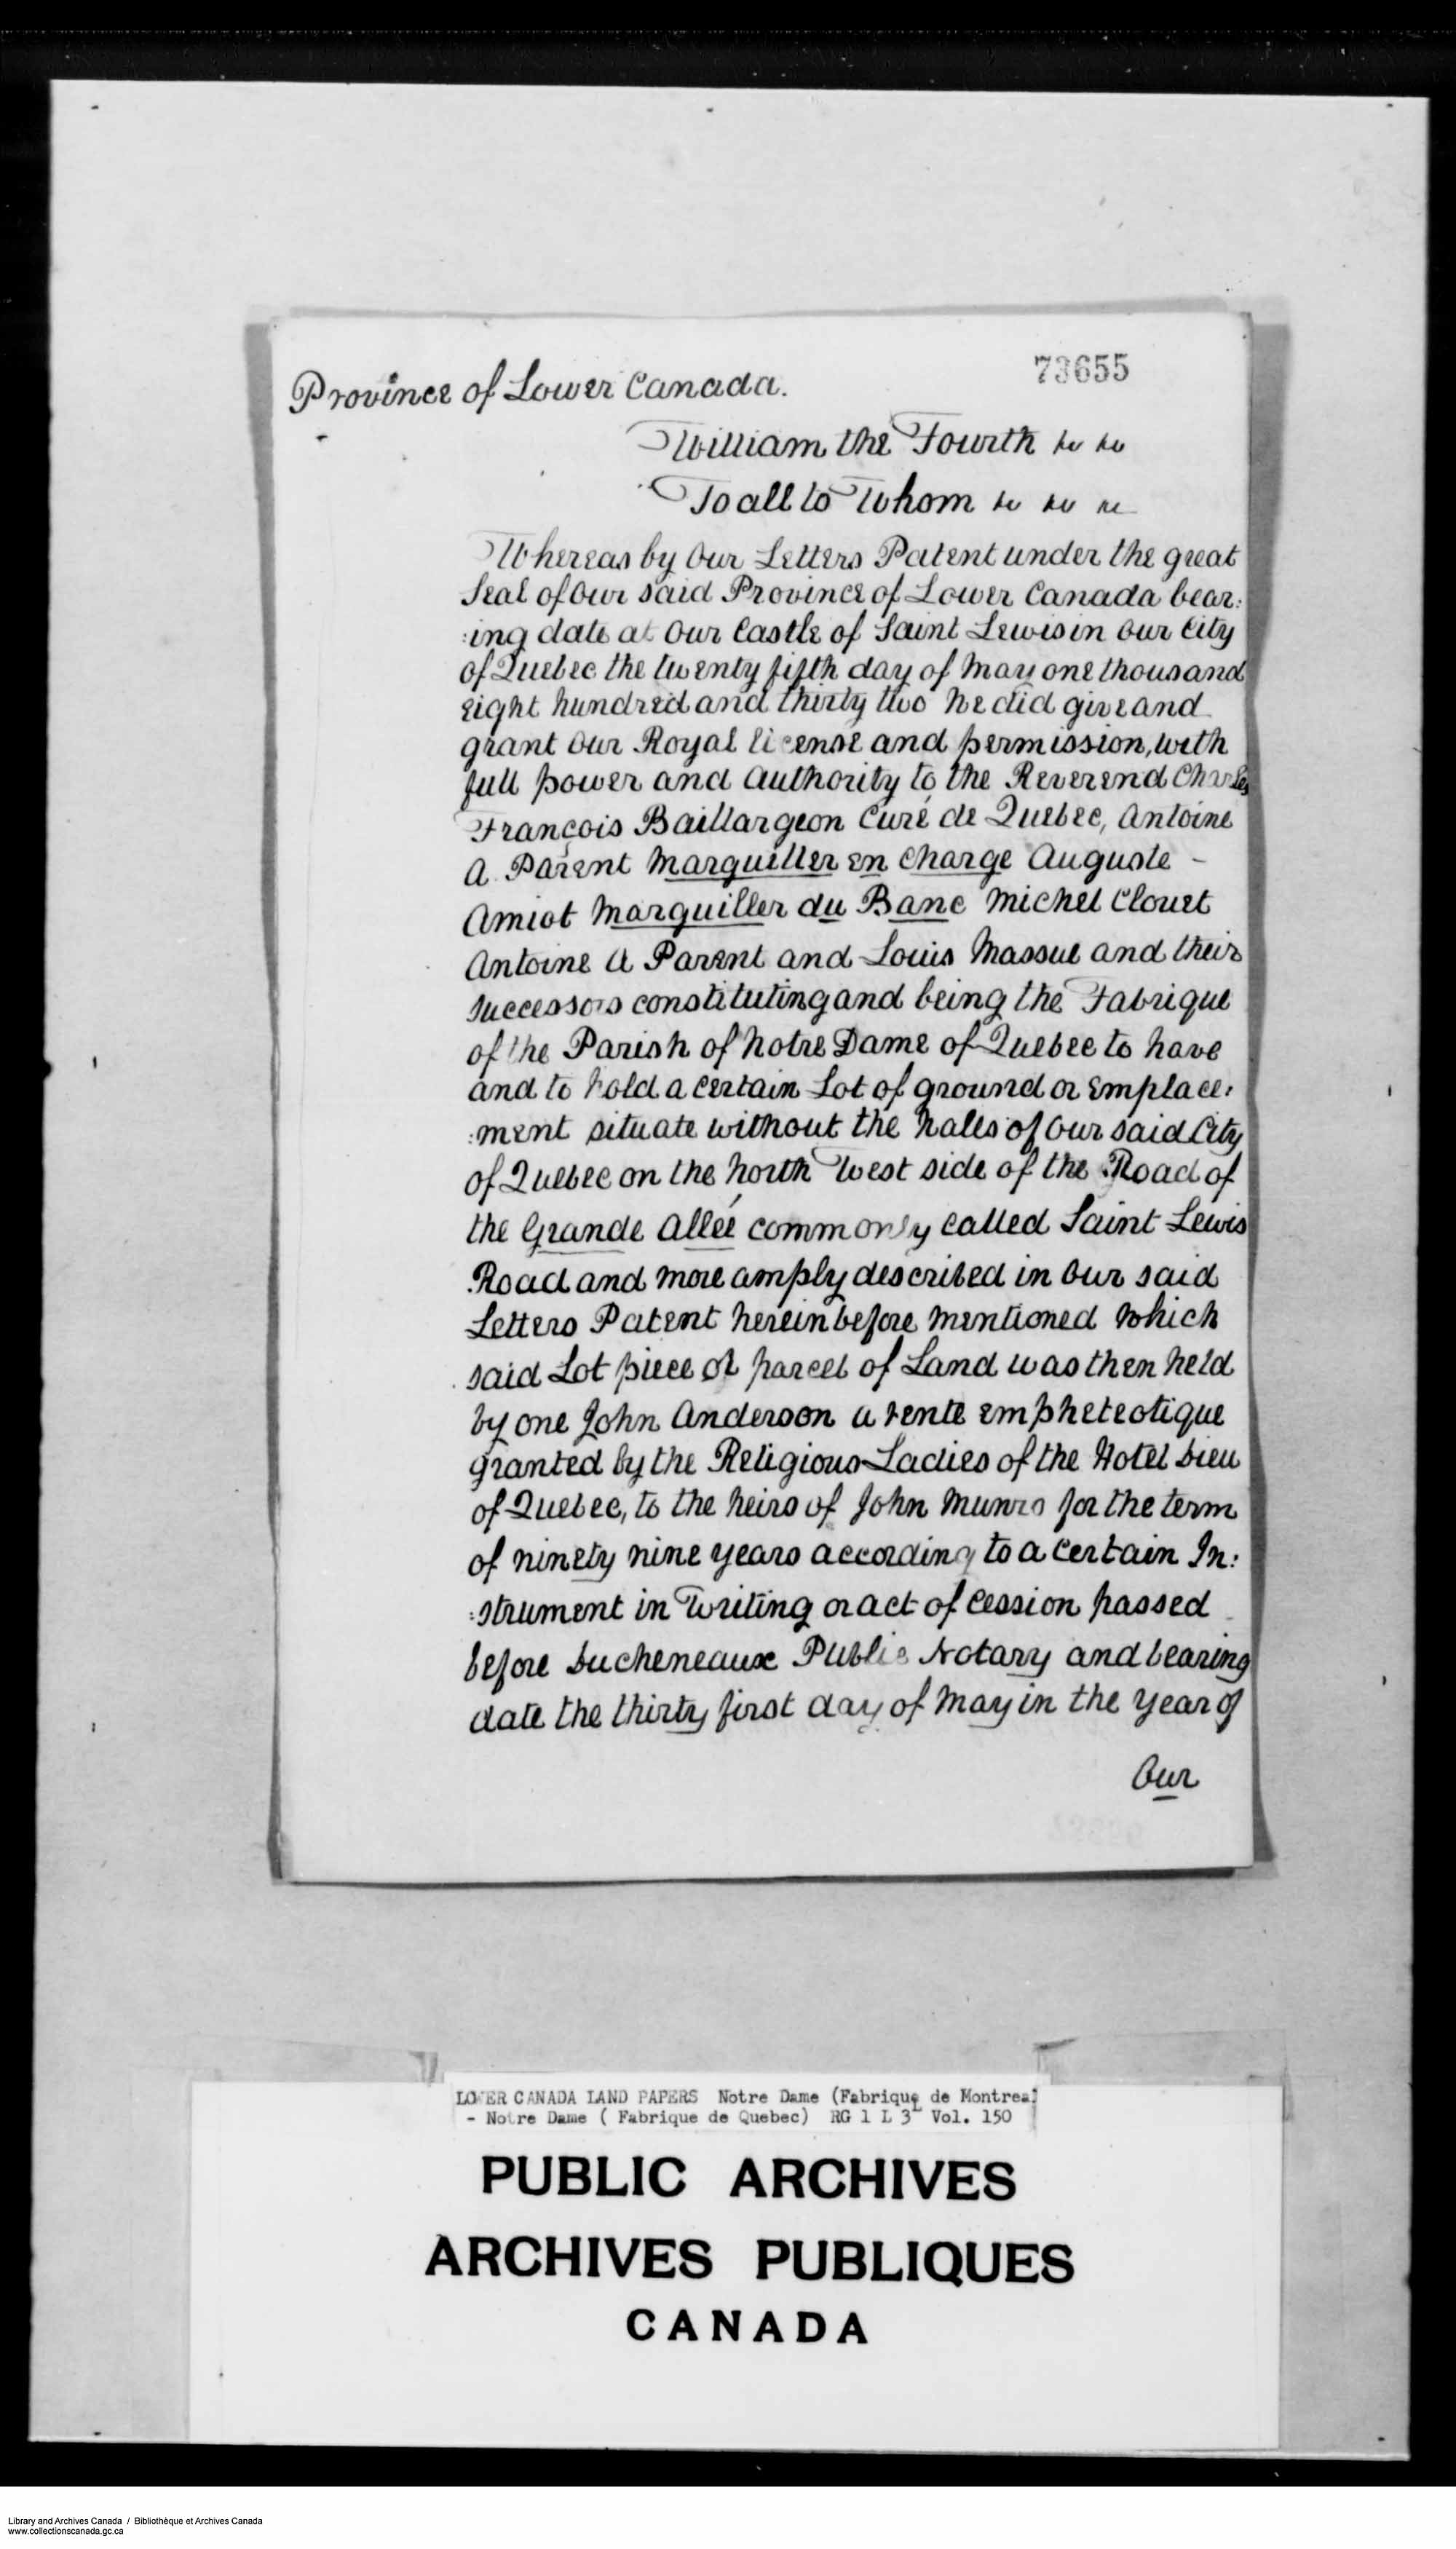 73655
Province of Lower Canada.
William the Fourth &c &c
To all to Whom &c &c &c
Whereas by Our Letters Patent under the great
Seal of Our said Province of Lower Canada bear:
:ing date at Our Castle of Saint Lewis in Our City
of Quebec the twenty fifth day of May one thousand
eight hundred and thirty two he did give and
grant Our Royal license and permission, with
full power and Authority to the Reverend Charles
François Baillargeon Curé de Quebec, Antoine
A. Parent Marguiller en Charge Auguste -
Amiot Marguiller du Banc Michel Clouet
Antoine A Parent and Louis Massue and their
Successors constituting and being the Fabrique
of the Parish of Notre Dame of Quebec to have
and to hold a certain Lot of ground or Emplace:
:ment situate without the Walls of Our said City
of Quebec on the North West side of the Road of
the Grande Alleé commonly called Saint Lewis
Road and more amply described in Our said
Letters Patent herein before Mentioned Which
said Lot piece or parcel of Land was then held
by one John Anderson a rente empheteotique
granted by the Religious Ladies of the Hotel Dieu
of Quebec, to the heirs of John Munro for the term
of ninety nine years according to a Certain In:
:strument in Writing or act of Cession passed
before Ducheneaux Public Notary and bearing
date the thirty first day of May in the Year of
Our
LOWER CANADA LAND PAPERS Notre Dame (Fabrique de Montreal)
- Notre Dame ( Fabrique de Quebec) RG 1 L 3L Vol. 150
PUBLIC ARCHIVES
ARCHIVES PUBLIQUES
CANADA
Library and Archives Canada / Bibliothèque et Archives Canada
www.collectionscanada.gc.ca